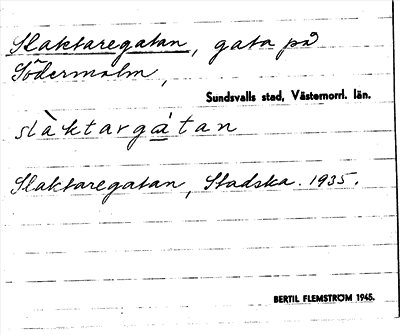 Slaktaregatan, gata på
Södermalm,
Sundsvalls stad, Västernorrl. län.
slàktargátan
Slaktaregatan, Stadska. 1935.
BERTIL FLEMSTRÖM 1945.